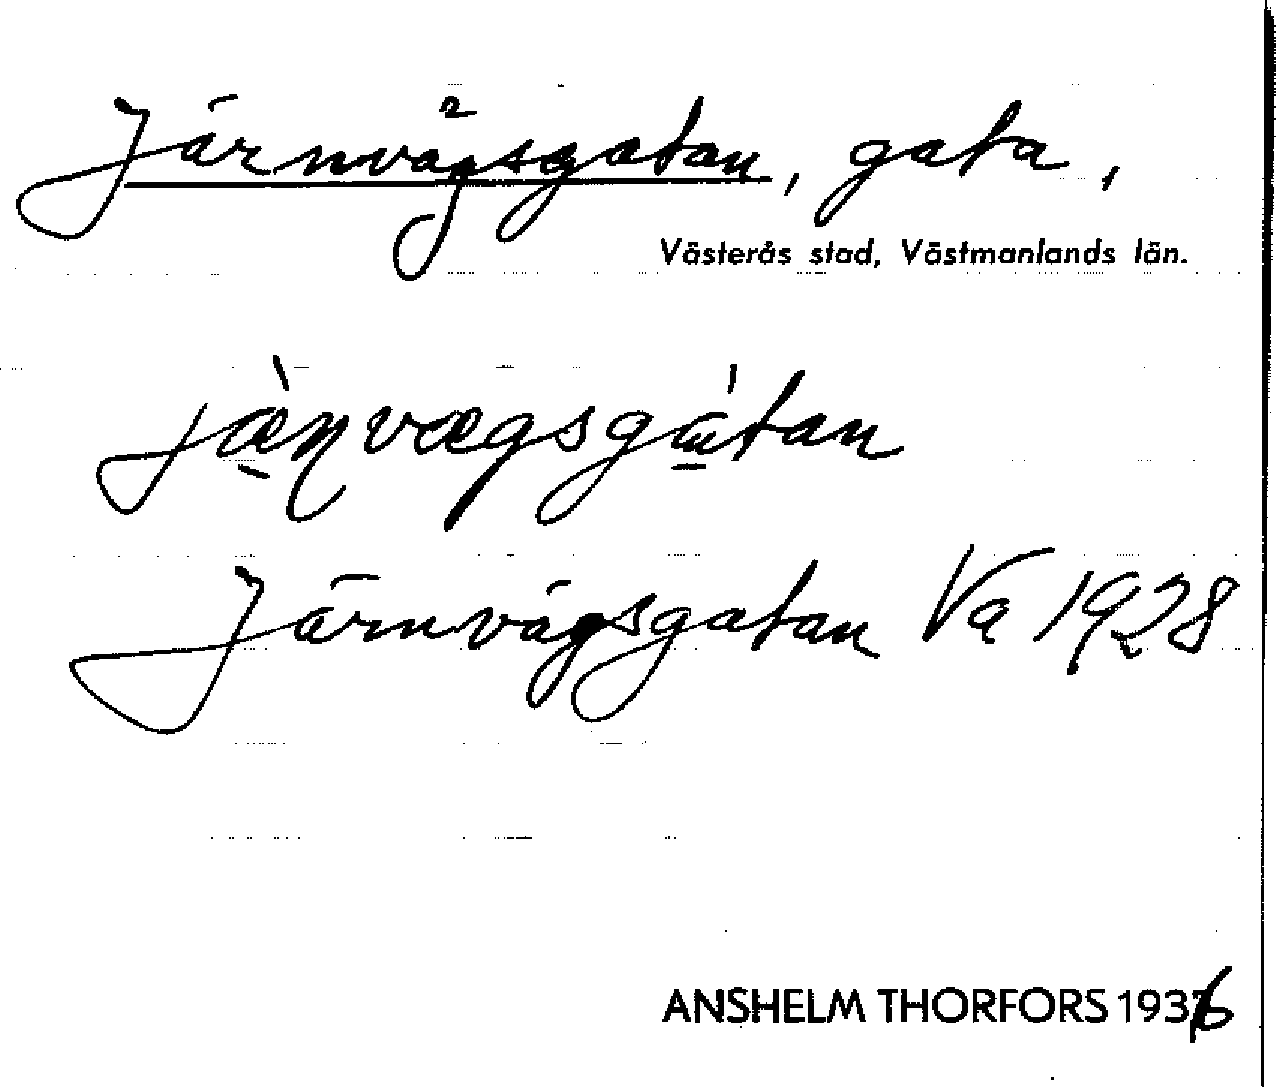 Järnvägsgatan, gata,
Västerås stad, Västmanlands län.
jæ̀ṇvægsgátan
Järnvägsgatan Va 1928
ANSHELM THORFORS 1936